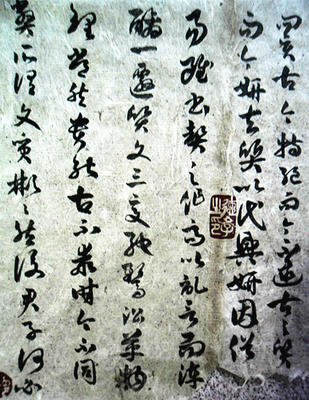 四賢古今特絕而今不逮古々質
而今妍夫質以代興妍因俗
易雖書契之作適以記言而淳
醨一遷質文三變馳騖沿革物
理常然貴能古不乖時今不同
弊所謂文質彬々然後君子何必